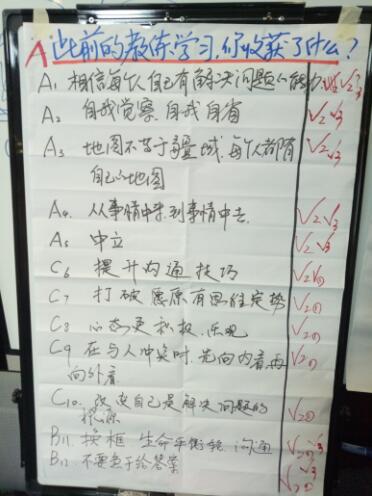 A 此前的教练学习,你收获了什么?
A1 相信每个人自己有解决问题的能力 √2√3
A2 自我觉察.自我自省 √2√3
A3 地图不等于疆域.每个人都有 √2√3
自己的地图
A4. 从事情中来.到事情中去. √2√3
A5 中立 √2√3
C6 提升沟通技巧 √2
C7 打破原有思维定势 √2
C8 心态更积极.乐观 √2
C9 在与人冲突时.先向内看.再 √2
向外看
C10. 改变自己是解决问题的 √2
根源
B11. 换框 生命平衡轮 沟通 √2 √3
B12 不要急于给答案 √2 √3